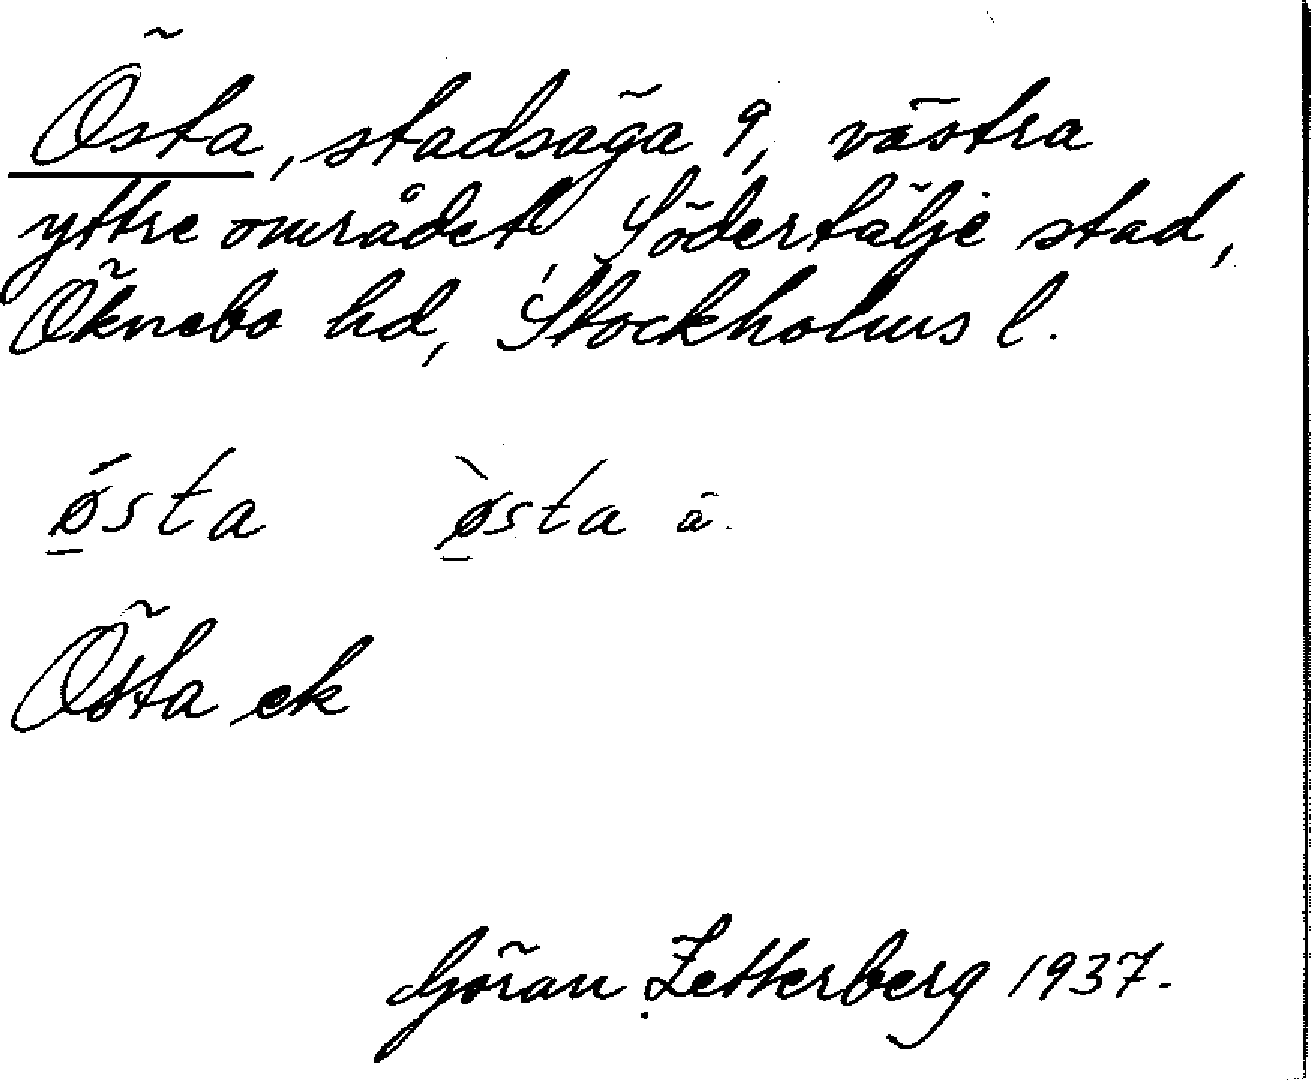 Östa, stadsäga 9, västra
yttre området, Södertälje stad,
Öknebo hd, Stockholms l.
ǿ̱sta ø̱̀sta ä.
Östa ek
Göran Zetterberg 1937.